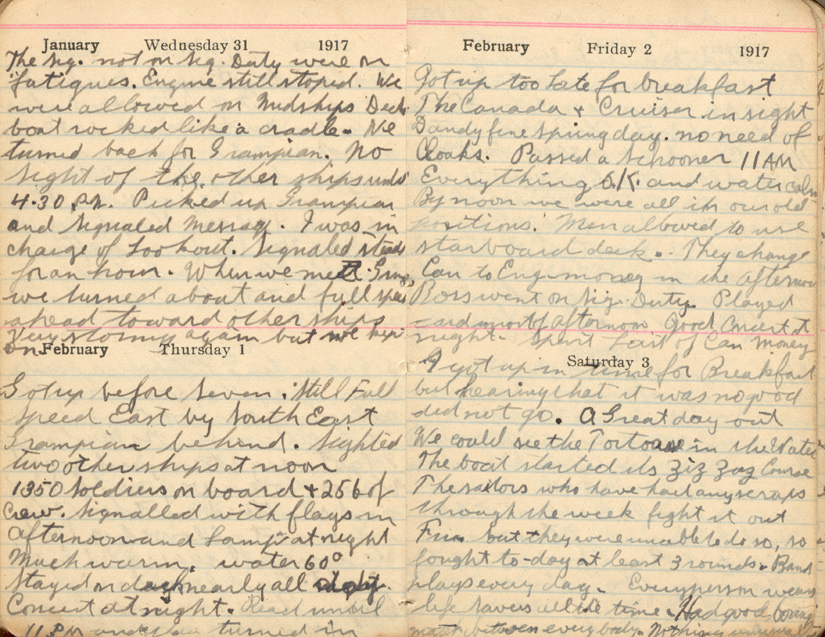 January Wednesday 31 1917
The Sig. not on Sig. Duty were on
fatigues. Engine still stoped. We
were allowed on Midships Deck
boat rocked like a cradle. We
turned back for Grampian. No
sight of the other ships until
4.30 P.M. Picked up Grampian
and Signaled Message. I was in
charge of Lookout. Signaled steady
for an hour. When we met Gramp,
we turned about and full speed
ahead toward other ships
Very stormy again but we kept
on.
February Thursday 1
Got up before Seven. Still Full
Speed East by South East
Grampian behind. Sighted
two other ships at noon
1350 Soldiers on board + 256 of
Crew. Signalled with flags in
afternoon and Lamp at night
Much warm. water 60°
Stayed on deck nearly all
Concert at night. Read until
11 P.M. and turned in
February Friday 2 1917
Got up too late for breakfast
The Canada + Cruiser in sight
Dandy fine Spring day. no need of
Cloaks. Passed a Schooner 11 AM
Everything O.K. and water calm
By noon we were all in our old
positions. Men allowed to use
starboard deck. They change
Can to Eng. money in the afternoon
Ross went on Sig. Duty. Played
cards most of afternoon Good Concert at
night. Spent last of Can Money
Saturday 3
I got up in time for Breakfast
but hearing that it was no good
did not go. A Great day out
We could see the Tortoise in the Water
The boat started its Ziz Zag Course
The sailors who have had any scraps
through the week fight it out
Fri. but they were unable to do so, so
fought to-day at least 3 rounds. Band
plays every day. Every person wears
life savers all the time. Had good boxing
match between everybody. Nothing